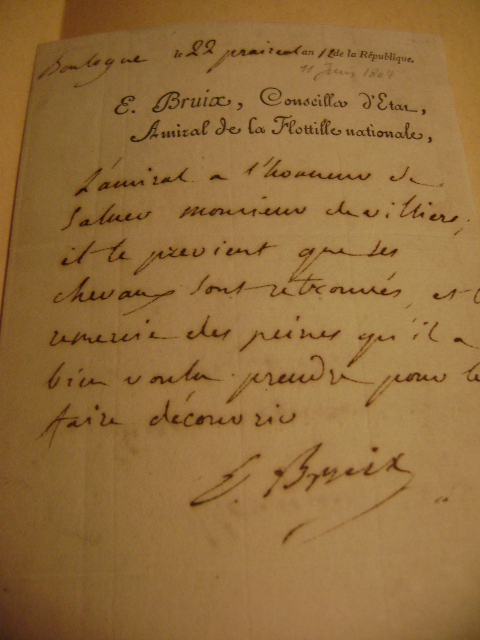 Boulogne le 22 prairial an 12 de la République.
11 Juin 1804
E. Bruix, Conseiller d'Etat,
Amiral de la Flottille nationale,
L'amiral a l'honneur de
saluer monsieur devilliers,
et le prévient que ses
chevaux sont retrouvés, et l
remercie des peines qu'il a
bien voulu prendre pour le
faire découvrir
E. Bruix